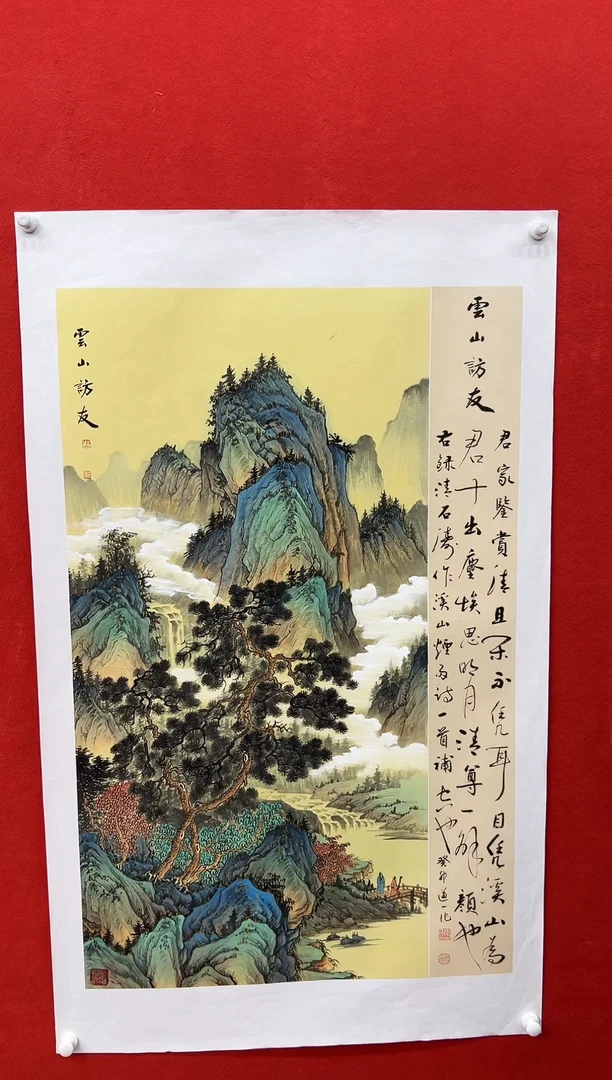 雲山訪友
雲山訪友
君家鑒賞清且閑不凭耳目凭溪山為
君寫出塵埃思明月清尊一解顏也
右録清石濤作溪山煙雨詩一首補空也癸卯道一